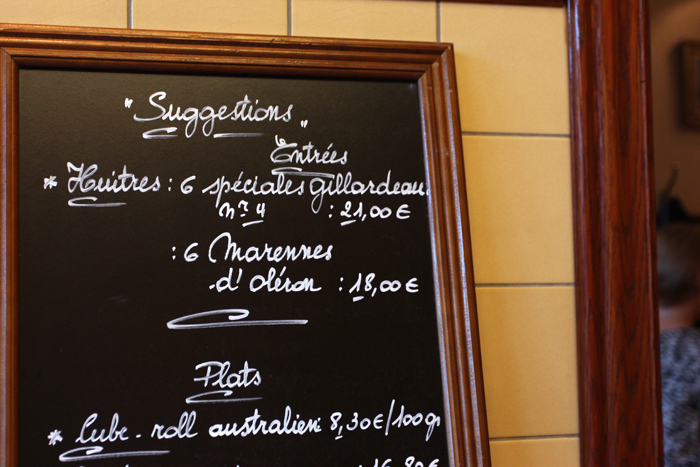 "Suggestions"
Entrées
* Huitres : 6 spéciales Gillardeau
n° 4 : 21,00 €
: 6 Marennes
d'Oléron : 18,00 €
Plats
* Cube-roll australien: 8,30€/100gr
16,80€